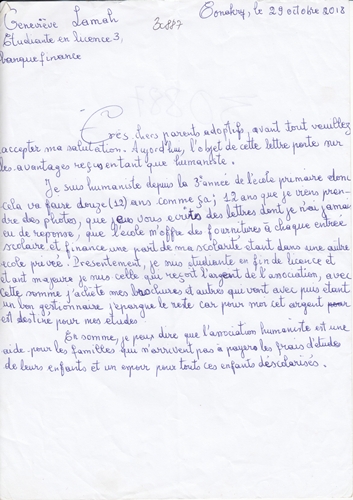 Geneviève Lamah 32887 Conakry, le 29 octobre 2018
Etudiante en licence 3,
banque finance
Très chers parents adoptifs, avant tout veuillez
accepter ma salutation. Aujourd'hui, l'objet de cette lettre porte sur
les avantages reçus en tant que humaniste.
Je suis humaniste depuis la 3e année de l'école primaire donc
cela va faire douze (12) ans comme ça; 12 ans que je viens pren-
dre des photos, que je vous écrits des lettres dont je n'ai jamais
eu de reponse, que l'école m'offre de fournitures à chaque entrée
scolaire et finance une part de ma scolarité étant dans une autre
école privée. Presentement, je suis studiante en fin de licence et
étant majeure je suis celle qui reçoit l'argent de l'association, avec
cette somme j'achète mes brochures et autres qui vont avec puis étant
un bon gestionnaire j'epargne le reste car pour moi cet argent
est destiné pour mes études.
En somme, je peux dire que l'association humaniste est une
aide pour les familles qui n'arrivent pas à payer les frais d'études
de leurs enfants et un espoir pour touts ces enfants déscolarisés.